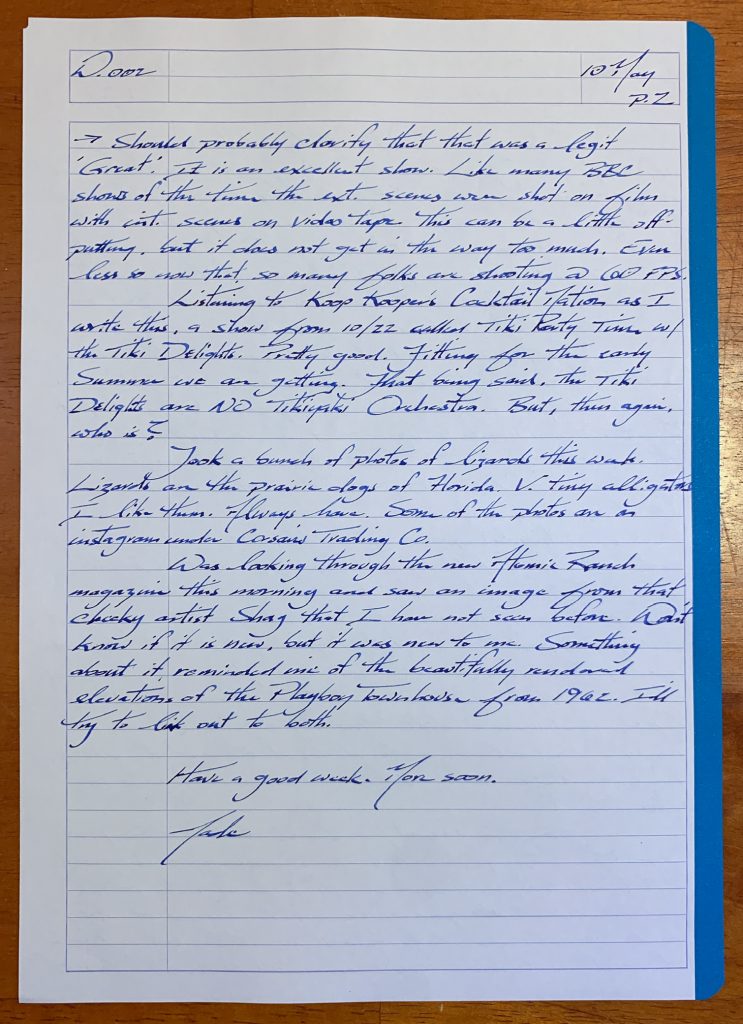 D.002
10 May
P.2
→ Should probably clarify that that was a legit
'Great'. It is an excellent show. Like many BBC
shows of the time the ext. scenes were shot on film
with int. scenes on video tape. This can be a little off-
putting, but it does not get in the way too much. Even
less so now that so many folks are shooting @ 60 FPS.
Listening to Koop Kooper's Cocktail Nation as I
write this, a show from 10/22 called Tiki Party Time w/
the Tiki Delights. Pretty good. Fitting for the early
Summer we are getting. That being said, the Tiki
Delights are NO Tikiyaki Orchestra. But, then again,
who is?
Took a bunch of photos of lizards this week.
Lizards are the prairie dogs of Florida. V. tiny alligators
I like them. Always have. Some of the photos are on
instagram under Corsair Trading Co.
Was looking through the new Atomic Ranch
magazine this morning and saw an image from that
cheeky artist Shag that I have not seen before. Don't
know if it is new, but it was new to me. Something
about it reminded me of the beautifully rendered
elevations of the Playboy Townhouse from 1962. I'll
try to link out to both.
Have a good week. More soon.